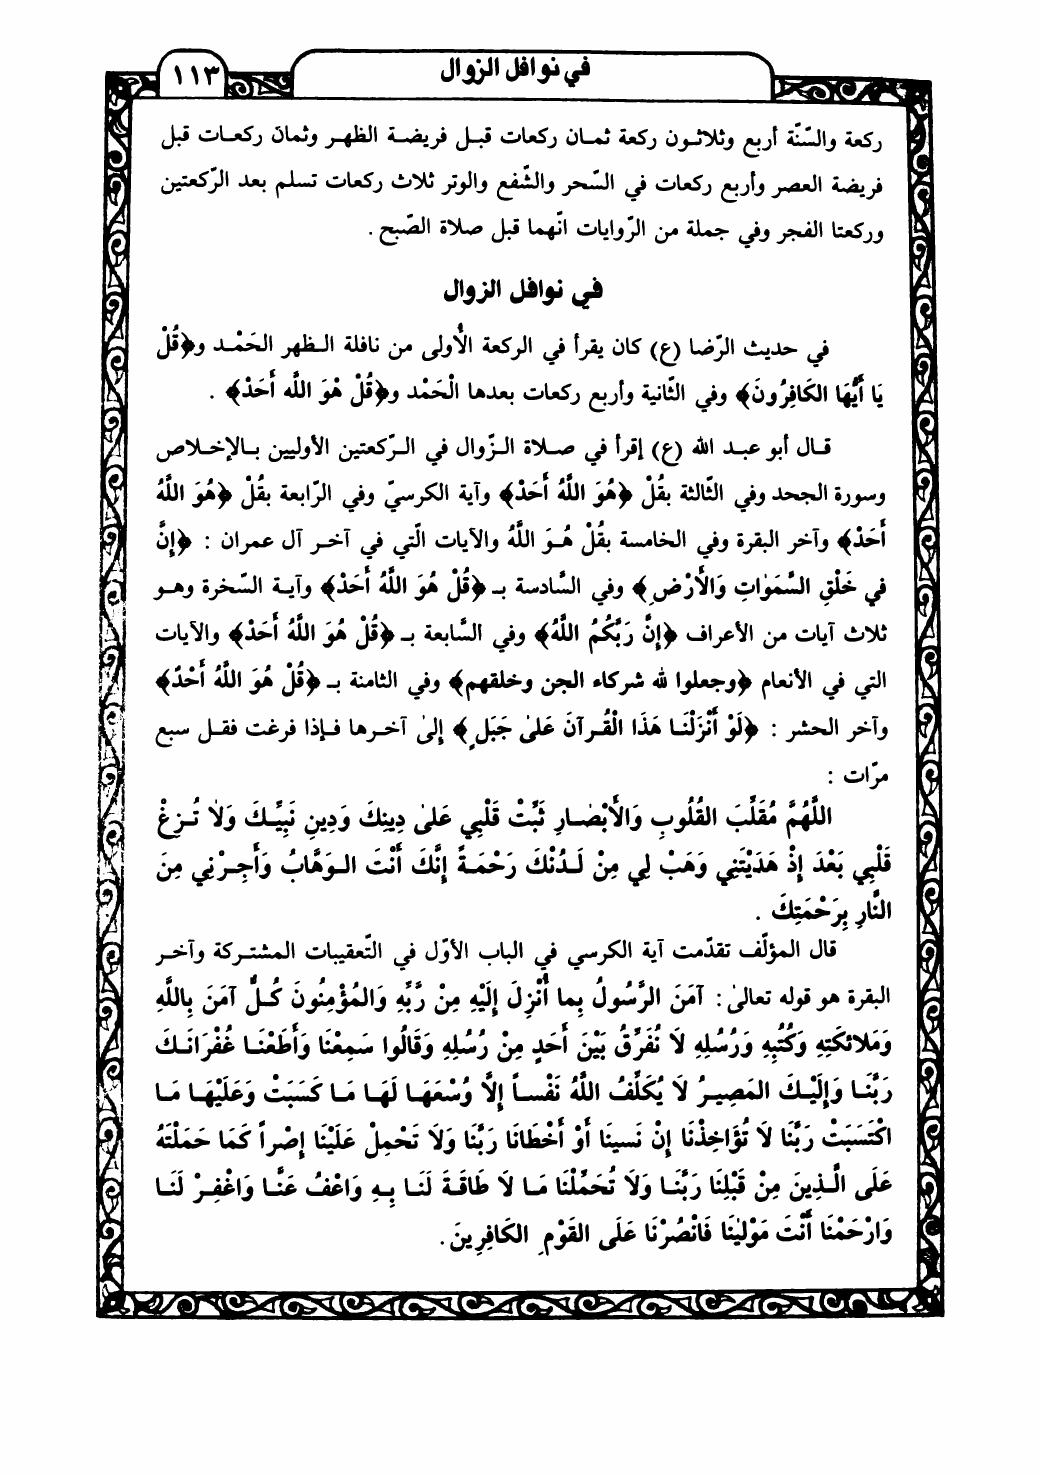 في نوافل الزوال
١١٣
ركعة والسّنّة أربع وثلاثـون ركعة ثمـان ركعات قبـل فريضـة الظهـر وثمان ركعـات قبل
فريضة العصر وأربع ركعات في السّحر والشّفع والوتر ثلاث ركعات تسلم بعد الرّكعتين
وركعتا الفجر وفي جملة من الرّوايات انّهما قبل صلاة الصّبح .
في نوافل الزوال
في حديث الرّضا (ع) كان يقرأ في الركعة الأُولى من نافلة الـظهر الحَمْـد و﴿قُلْ
يَا أَيُّهَا الكَافِرُونَ﴾ وفي الثّانية وأربع ركعات بعدها الْحَمْد و﴿قُلْ هْوَ اللَّه أَحَدْ﴾ .
قـال أبو عبـد الله (ع) إقرأ في صـلاة الـزّوال في الـرّكعتين الأوليين بـالإخـلاص
وسورة الجحد وفي الثّالثة بقُلْ ﴿هُوَ اللَّهُ أَحَدْ﴾ وآية الكرسيّ وفي الرّابعة بقُلْ ﴿هُوَ اللَّهُ
أَحَدْ﴾ وآخر البقرة وفي الخامسة بقُلْ هُـوَ اللَّهُ والآيات الّتي في آخـر آل عمران : ﴿إِنَّ
في خَلْقِ السَّمَوٰاتِ وَالأَرْضِ﴾ وفي السَّادسة بـ ﴿قُلْ هُوَ اللَّهُ أَحَدْ﴾ وآيـة السّخرة وهـو
ثلاث آيات من الأعراف ﴿إِنَّ رَبَّكُمُ اللَّهُ﴾ وفي السَّابعة بـ ﴿قُلْ هُوَ اللَّهُ أَحَدْ﴾ والآيات
التي في الأنعام ﴿وجعلوا لله شركاء الجن وخلقهم﴾ وفي الثامنة بـ ﴿قُلْ هُوَ اللَّهُ أَحْدٌ﴾
وآخر الحشر : ﴿لَوْ أَنْزَلْنَـا هَذَا الْقُـرآنَ عَلىٰ جَبَلٍ﴾ إلىٰ آخـرها فـإذا فرغت فقـل سبع
مرّات :
اللَّهُمَّ مُقَلِّبَ القُلُوبِ وَالأَبْصٰـارِ ثَبِّتْ قَلْبِي عَلىٰ دِينِكَ وَدِينِ نَبِيِّـكَ وَلاٰ تُـزِغْ
قَلْبِي بَعْدَ إِذْ هَدَيْتَنِي وَهَبْ لِي مِنْ لَـدُنْكَ رَحْمَـةً إِنَّكَ أَنْتَ الـوَهَّابُ وَأَجِـرْنِي مِنَ
النَّارِ بِرَحْمَتِكَ .
قال المؤلّف تقدّمت آية الكرسي في الباب الأوّل في التّعقيبات المشتـركة وآخـر
البقرة هو قوله تعالىٰ : آمَنَ الرَّسُولُ بِما أُنْزِلَ إِلَيْهِ مِنْ رَّبِّهِ وَالمُؤْمِنُونَ كُـلٌّ آمَنَ بِاللَّهِ
وَمَلائكَتِهِ وَكُتُبِهِ وَرُسُلِهِ لاَ نُفَرِّقُ بَيْنَ أَحَدٍ مِنْ رُسُلِهِ وَقَالُوا سَمِعْنَا وَأَطَعْنَـا غُفْرَانَـكَ
رَبَّنَـا وَإِلَيْـكَ المَصِيـرُ لاَ يُكَلِّفُ اللَّهُ نَفْسـاً إِلَّا وُسْعَهَـا لَهَـا مَـا كَسَبَتْ وَعَلَيْهَـا مَـا
اكْتَسَبَتْ رَبَّنَا لاَ تُؤَاخِذْنَا إِنْ نَسينَا أَوْ أَخْطَانَا رَبَّنَا وَلاَ تَحْمِلْ عَلَيْنَا إِصْراً كَمَا حَمَلْتَهُ
عَلَى الَّـذِينَ مِنْ قَبْلِنَا رَبَّنَـا وَلاَ تُحَمِّلْنَا مَـا لاَ طَاقَـةَ لَنَـا بِـهِ وَاعْفُ عَنَّـا وَاغْفِـرْ لَنَـا
وَارْحَمْنَا أَنْتَ مَوْلٰينَا فَانْصُرْنَا عَلَى القَوْمِ الكَافِرِينَ .